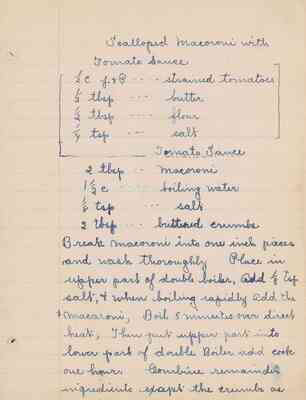 Scalloped Macoroni with
Tomato Sauce
1/2 c --- strained tomatoes
1/2 tbsp --- butter
1/2 tbsp --- flour
tsp --- salt
Tomato Sauce
2 tbsp -- Macoroni
1 1/2 c --- boiling water
tsp -- salt
2 tbsp --- buttered crumbs
Break macoroni into one inch pieces
and wash thoroughly Place in
upper part of double boiler, add tsp
salt, & when boiling rapidly add the
macaroni, Boil 5 minutes over direct
heat, Then put upper part into
lower part of double Boiler and cook
one hour. Combine remainding
ingredients except the crumbs as